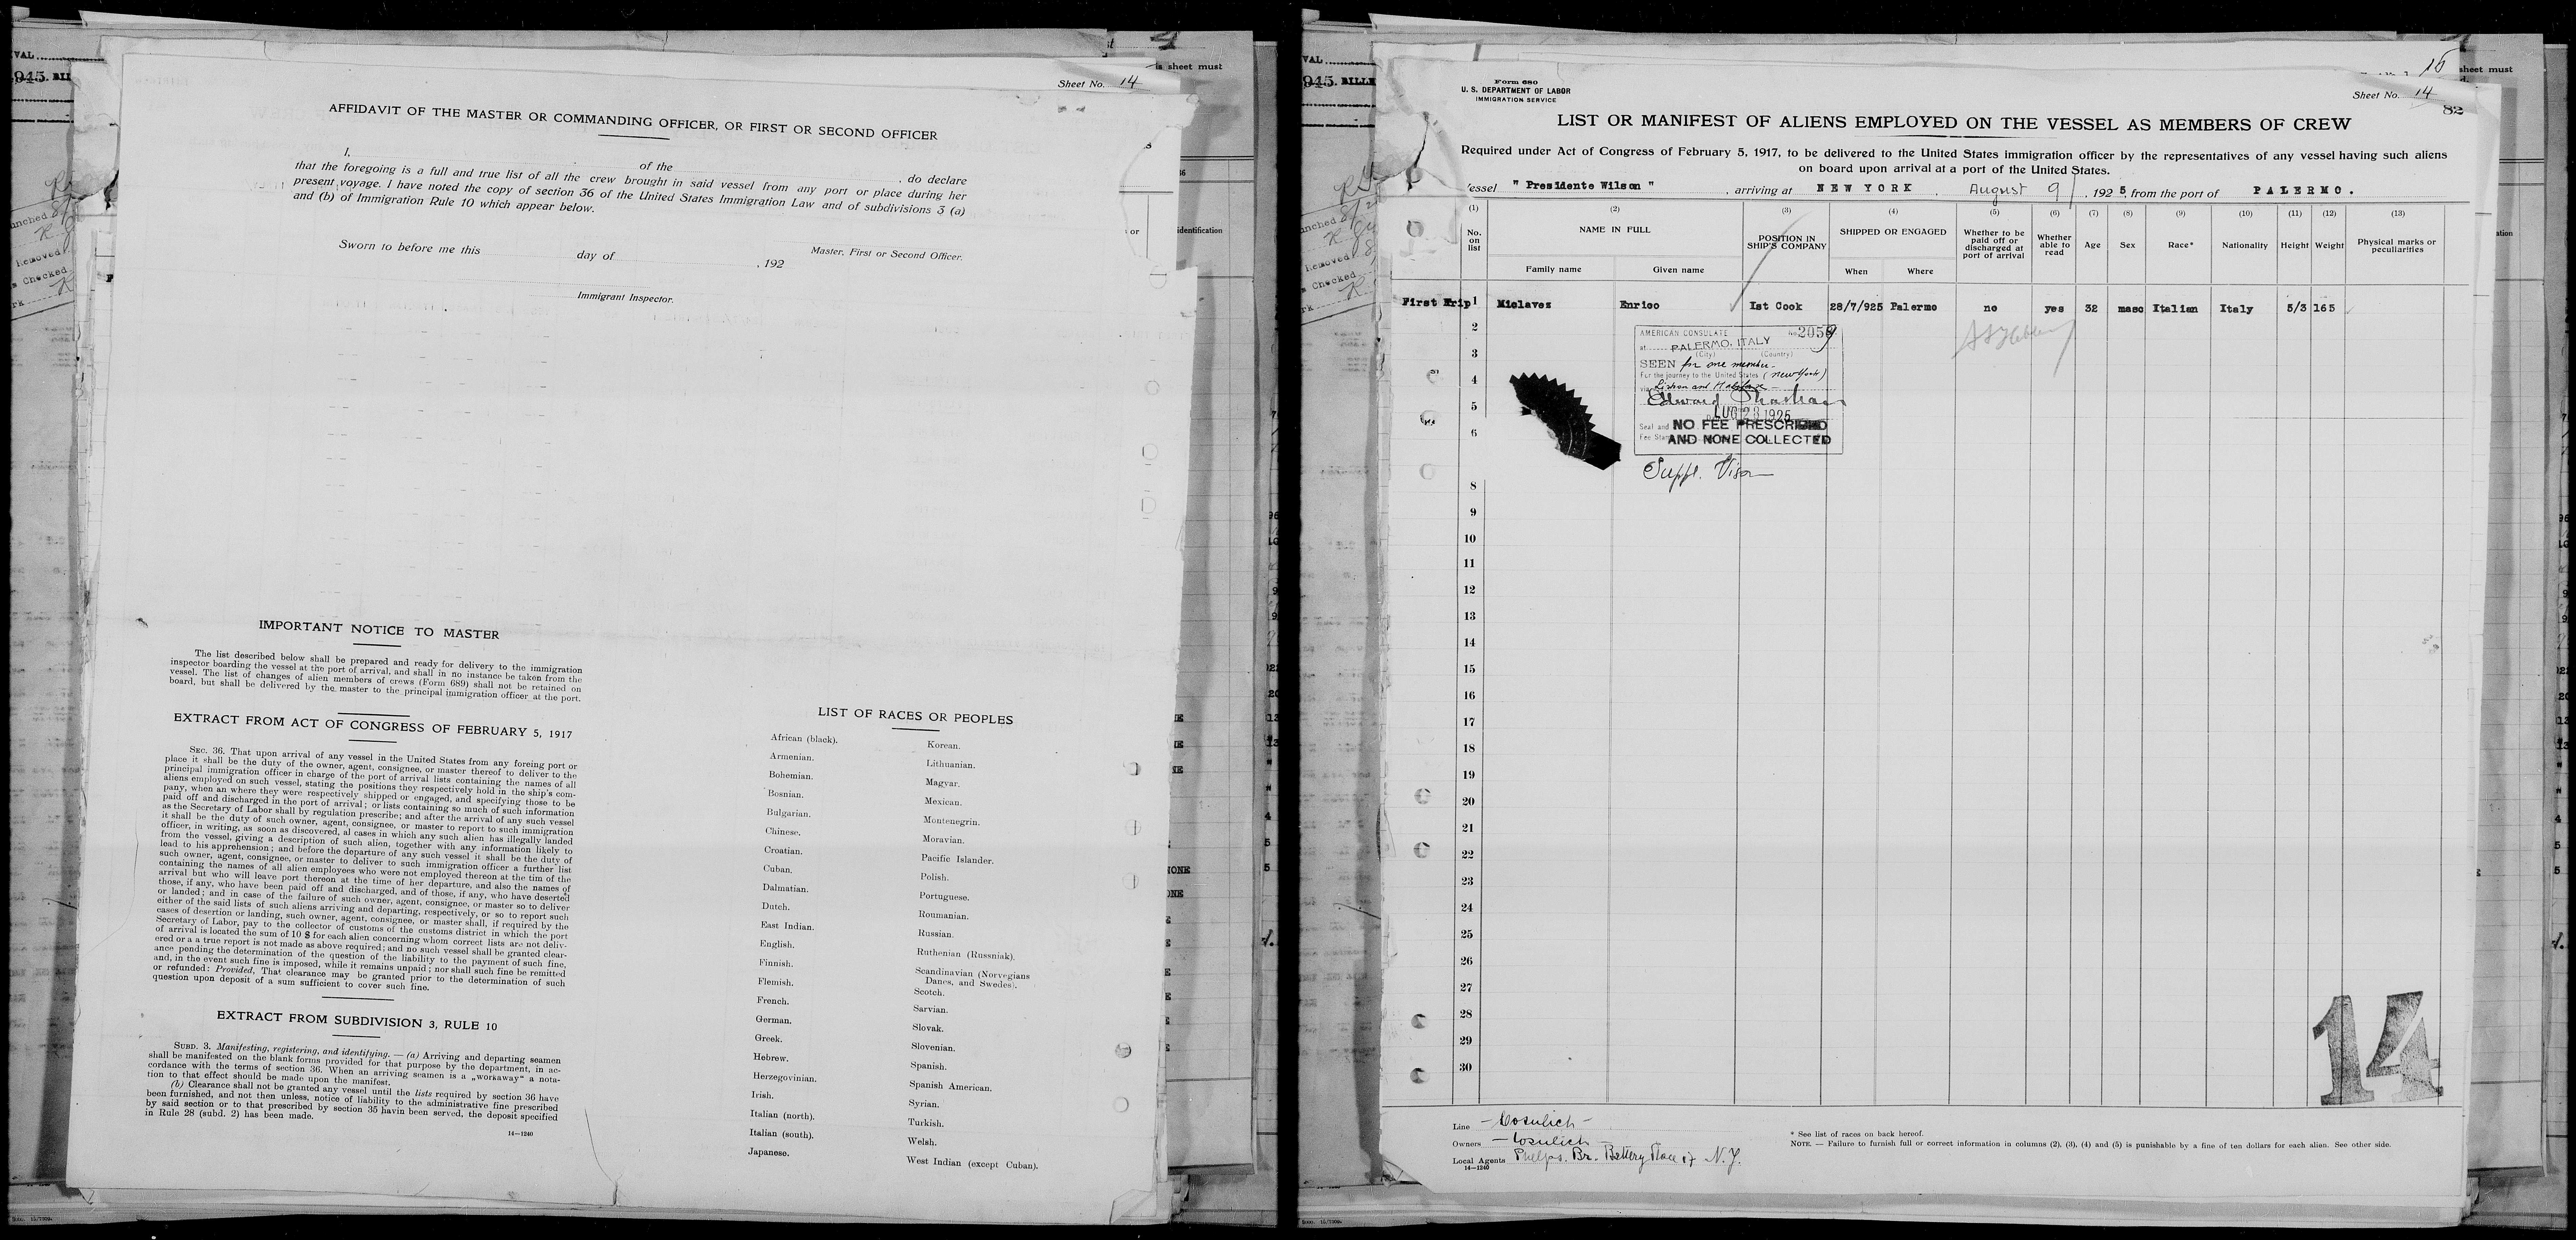 Sheet No. 14
AFFIDAVIT OF THE MASTER OR COMMANDING OFFICER, OR FIRST OR SECOND OFFICER
I, of the , do declare
that the foregoing is a full and true list of all the crew brought in said vessel from any port or place during her
present voyage. I have noted the copy of section 36 of the United States Immigration Law and of subdivisions 3 (a)
and (b) of Immigration Rule 10 which appear below.
Sworn to before me this day of , 192
Master, First or Second Officer.
Immigrant Inspector.
IMPORTANT NOTICE TO MASTER
The list described below shall be prepared and ready for delivery to the immigration
inspector boarding the vessel at the port of arrival, and shall in no instance be taken from the
vessel. The list of changes of alien members of crews (Form 689) shall not be retained on
board, but shall be delivered by the master to the principal immigration officer at the port.
EXTRACT FROM ACT OF CONGRESS OF FEBRUARY 5, 1917
SEC. 36. That upon arrival of any vessel in the United States from any foreing port or
place it shall be the duty of the owner, agent, consignee, or master thereof to deliver to the
principal immigration officer in charge of the port of arrival lists containing the names of all
aliens employed on such vessel, stating the positions they respectively hold in the ship's com-
pany, when an where they were respectively shipped or engaged, and specifying those to be
paid off and discharged in the port of arrival; or lists containing so much of such information
as the Secretary of Labor shall by regulation prescribe; and after the arrival of any such vessel
it shall be the duty of such owner, agent, consignee, or master to report to such immigration
officer, in writing, as soon as discovered, al cases in which any such alien has illegally landed
from the vessel, giving a description of such alien, together with any information likely to
lead to his apprehension; and before the departure of any such vessel it shall be the duty of
such owner, agent, consignee, or master to deliver to such immigration officer a further list
containing the names of all alien employees who were not employed thereon at the tim of the
arrival but who will leave port thereon at the time of her departure, and also the names of
those, if any, who have been paid off and discharged, and of those, if any, who have deserted
or landed; and in case of the failure of such owner, agent, consignee, or master so to deliver
either of the said lists of such aliens arriving and departing, respectively, or so to report such
cases of desertion or landing, such owner, agent, consignee, or master shall, if required by the
Secretary of Labor, pay to the collector of customs of the customs district in which the port
of arrival is located the sum of 10 $ for each alien concerning whom correct lists are not deliv-
ered or a a true report is not made as above required; and no such vessel shall be granted clear-
ance pending the determination of the question of the liability to the payment of such fine,
and, in the event such fine is imposed, while it remains unpaid; nor shall such fine be remitted
or refunded: Provided, That clearance may be granted prior to the determination of such
question upon deposit of a sum sufficient to cover such fine.
EXTRACT FROM SUBDIVISION 3, RULE 10
SUBD. 3. Manifesting, registering, and identifying. — (a) Arriving and departing seamen
shall be manifested on the blank forms provided for that purpose by the department, in ac-
cordance with the terms of section 36. When an arriving seamen is a „workaway“ a nota-
tion to that effect should be made upon the manifest.
(b) Clearance shall not be granted any vessel until the lists required by section 36 have
been furnished, and not then unless, notice of liability to the administrative fine prescribed
by said section or to that prescribed by section 35 havin been served, the deposit specified
in Rule 28 (subd. 2) has been made.
14—1240
LIST OF RACES OR PEOPLES
African (black).
Armenian.
Bohemian.
Bosnian.
Bulgarian.
Chinese.
Croatian.
Cuban.
Dalmatian.
Dutch.
East Indian.
English.
Finnish.
Flemish.
French.
German.
Greek.
Hebrew.
Herzegovinian.
Irish.
Italian (north).
Italian (south).
Japanese.
Korean.
Lithuanian.
Magyar.
Mexican.
Montenegrin.
Moravian.
Pacific Islander.
Polish.
Portuguese.
Roumanian.
Russian.
Ruthenian (Russniak).
Scandinavian (Norvegians
Danes, and Swedes).
Scotch.
Sarvian.
Slovak.
Slovenian.
Spanish.
Spanish American.
Syrian.
Turkish.
Welsh.
West Indian (except Cuban).
15
Form 680
U. S. DEPARTMENT OF LABOR
IMMIGRATION SERVICE
Sheet No. 14
82
LIST OR MANIFEST OF ALIENS EMPLOYED ON THE VESSEL AS MEMBERS OF CREW
Required under Act of Congress of February 5, 1917, to be delivered to the United States immigration officer by the representatives of any vessel having such aliens
on board upon arrival at a port of the United States.
essel " Presidente Wilson " , arriving at NEW YORK , August 9 , 192 5, from the port of PALERMO.
(1) (2) (3) (4) (5) (6) (7) (8) (9) (10) (11) (12) (13)
No. on list
NAME IN FULL
Family name Given name
POSITION IN SHIP'S COMPANY
SHIPPED OR ENGAGED
When Where
Whether to be paid off or discharged at port of arrival
Whether able to read
Age Sex Race* Nationality Height Weight
Physical marks or peculiarities
First Trip 1 Miclavez Enrico Ist Cook 28/7/925 Palermo no yes 32 masc Italian Italy 5/3 165
AMERICAN CONSULATE No 2059
at PALERMO, ITALY
(City) (Country)
SEEN for one member.
For the journey to the United States (new York)
via Lisbon and Halifax
LUG 28 1925
Seal and NO FEE PRESCRIBED
Fee Stamp AND NONE COLLECTED
Suppl. Visa
2
3
4
5
6
8
9
10
11
12
13
14
15
16
17
18
19
20
21
22
23
24
25
26
27
28
29
30
14
Line — Cosulich —
Owners — Cosulich —
Local Agents Phelps. Br. Battery Place 17 N.Y.
14—1240
* See list of races on back hereof.
NOTE. — Failure to furnish full or correct information in columns (2), (3), (4) and (5) is punishable by a fine of ten dollars for each alien. See other side.